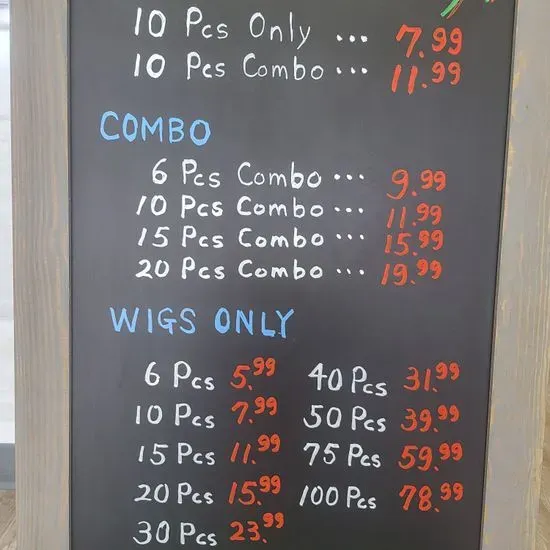 10 Pcs Only ... 7.99
10 Pcs Combo ... 11.99
COMBO
6 Pcs Combo ... 9.99
10 Pcs Combo ... 11.99
15 Pcs Combo ... 15.99
20 Pcs Combo ... 19.99
WIGS ONLY
6 Pcs 5.99 40 Pcs 31.99
10 Pcs 7.99 50 Pcs 39.99
15 Pcs 11.99 75 Pcs 59.99
20 Pcs 15.99 100 Pcs 78.99
30 Pcs 23.99